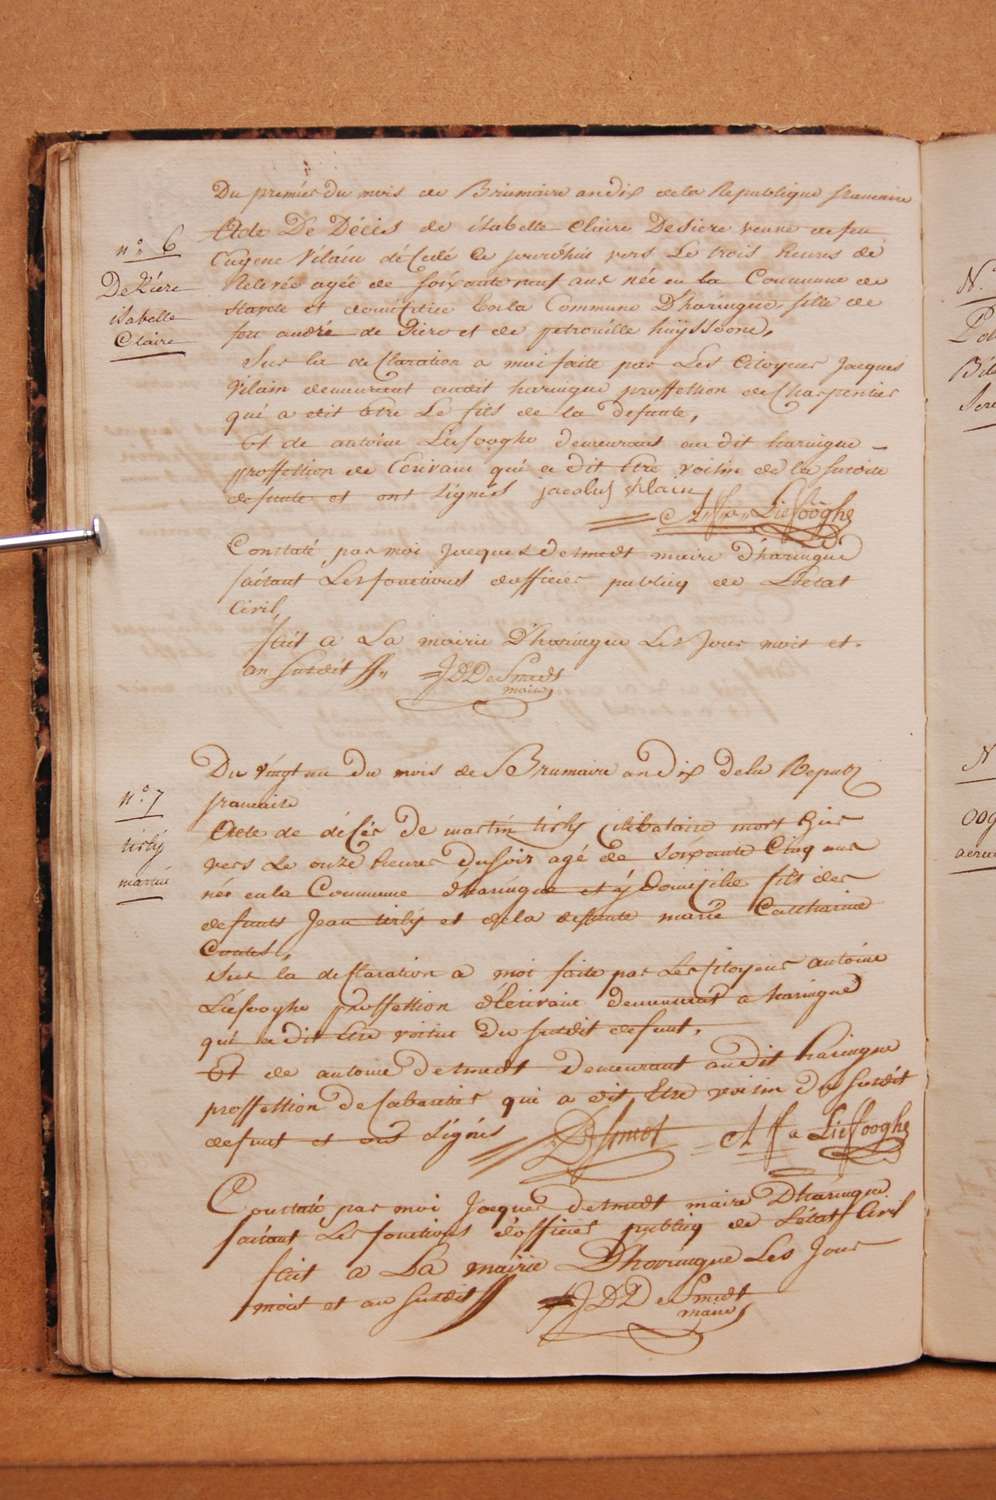 Du premier du mois de Brumaire an dix de la Republique francaise
n.° 6
DeZiere
isabelle
Claire
Acte De Décès de isabelle Claire Desiere veuve de feu
Eugene Vilain décedé ce jourdhui vers Le trois heures de
Relevée agée de soixante neuf ans née en la Commune de
Stavele et domiciliee En la Commune D'haringue fille de
feu andré de Ziere et de petronille huyssoone,
Sur la declaration a moi faite par Les Citoyens Jacques
Vilain demeurant audit haringue proffession de Charpentier
qui a dit Etre Le fils de la defunte,
Et de antoine Liefooghe demeurant au dit haringue
proffession de Ecrivain qui a dit Etre voisin de la susdite
defunte et ont signés jacobus vilain
A ff a Liefooghe
Constaté par moi Jacques Desmedt maire D'haringue
faisant Les fonctions d'officier publicq de L'etat
Civil,
fait a La mairie D'haringue Les Jour mois et
an susdit JDDeSmedt
maire
Du vingt un Du mois de Brumaire an Dix De la Republ
francaise
n.° 7
tirly
martin
Acte de décès De martin tirly Celibataire mort hier
vers Le onze heures Du soir agé De soixante Cinq ans
né en la Commune d'haringue et y Domicilie fils des
defunts Jean tirly et de la defunte marie Catharine
Sur la declaration a moi faite par Les Citoyens antoine
Liefooghe proffession d'Ecrivain Demeurant a haringue
qui a dit Etre voisin Du susdit defunt,
Et de antoine Desmedt Demeurant audit haringue
proffession De Cabaretier qui a dit Etre voisin Du susdit
defunt et ont signés DSmedt A ff a Liefooghe
Constaté par moi Jacques Desmedt maire D'haringue
faisant Les fonctions d'officier publicq de L'etat Civil
fait a La mairie D'haringue Les Jour
mois et an susdit JDDeSmedt
maire